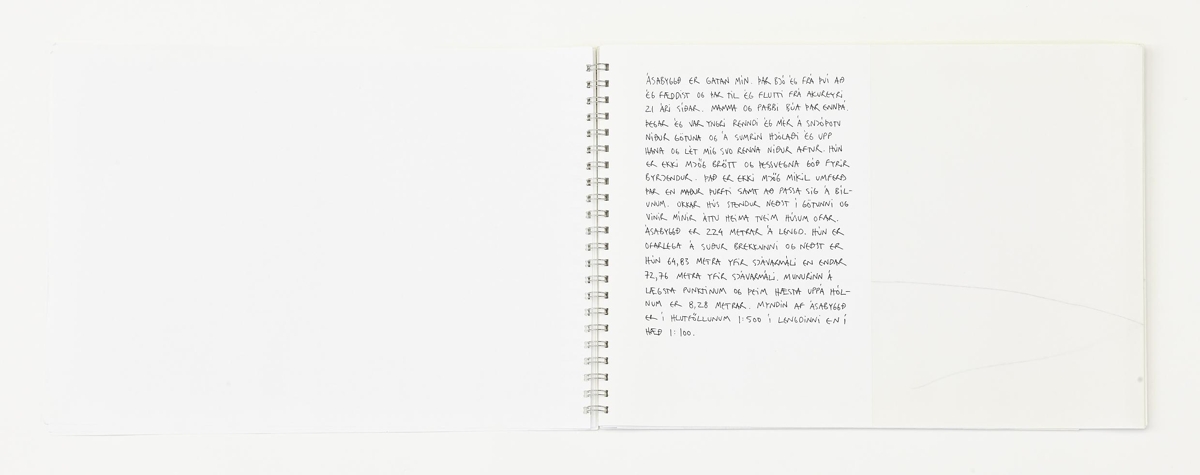 ÁSABYGGÐ ER GATAN MÍN. ÞAR BJÓ ÉG FRÁ ÞVÍ AÐ
ÉG FÆDDIST OG ÞAR TIL ÉG FLUTTI FRÁ AKUREYRI
21 ÁRI SÍÐAR. MAMMA OG PABBI BÚA ÞAR ENNÞÁ.
ÞEGAR ÉG VAR YNGRI RENNDI ÉG MÉR Á SNJÓÞOTU
NIÐUR GÖTUNA OG Á SUMRIN HJÓLAÐI ÉG UPP
HANA OG LÉT MIG SVO RENNA NIÐUR AFTUR. HÚN
ER EKKI MJÖG BRÖTT OG ÞESSVEGNA GÓÐ FYRIR
BYRJENDUR. ÞAÐ ER EKKI MJÖG MIKIL UMFERÐ
ÞAR EN MAÐUR ÞURFTI SAMT AÐ PASSA SIG Á BÍL-
UNUM. OKKAR HÚS STENDUR NEÐST Í GÖTUNNI OG
VINIR MÍNIR ÁTTU HEIMA TVEIM HÚSUM OFAR.
ÁSABYGGÐ ER 224 METRAR Á LENGD. HÚN ER
OFARLEGA Á SUÐUR BREKKUNNI OG NEÐST ER
HÚN 64,83 METRA YFIR SJÁVARMÁLI EN ENDAR
72,76 METRA YFIR SJÁVARMÁLI. MUNURINN Á
LÆGSTA PUNKTINUM OG ÞEIM HÆSTA UPPÁ HÓL-
NUM ER 8,28 METRAR. MYNDIN AF ÁSABYGGÐ
ER Í HLUTFÖLLUNUM 1:500 Í LENGDINNI EN Í
HÆÐ 1:100.